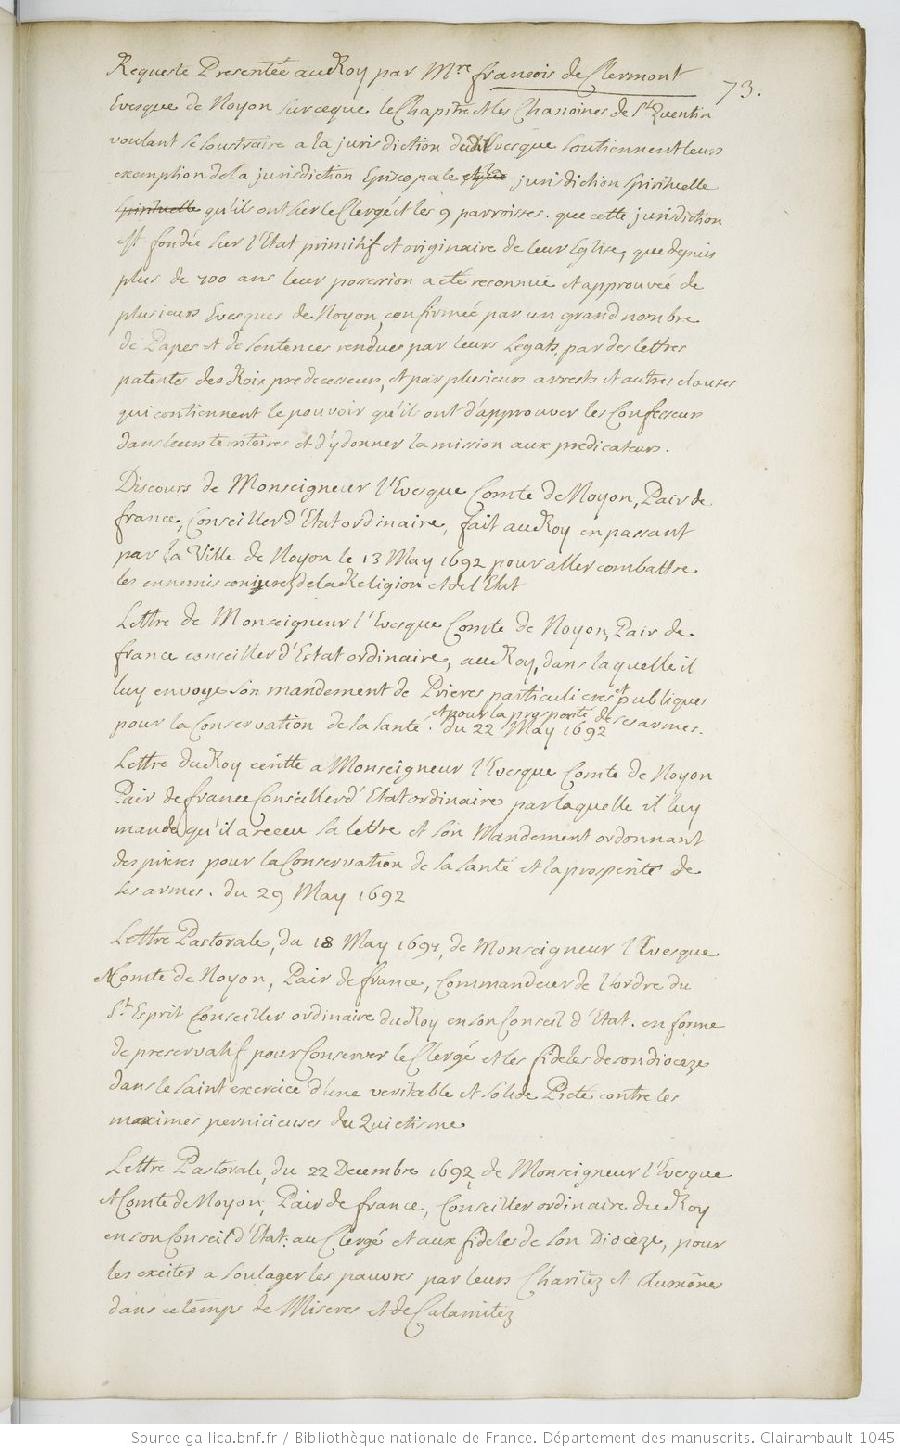 Requeste Presentée au Roy par Mre françois de Clermont
73.
Evesque de Noyon sur ce que le Chapitre et les Chanoines de St Quentin
voulant se soustraire a la jurisdiction dudit Evesque soutiennent leurs
exemption de la jurisdiction Episcopale jurisdiction spirituelle
spirituelle qu'ils ont sur le Clergé et les 9 parroisses. que cette jurisdiction
est fondée sur l'Etat primitif et originaire de leur Eglise, que depuis
plus de 700 ans leur possession a eté reconnuë et approuvée de
plusieurs Evesques de Noyon, confirmée par un grand nombre
de Papes et de sentences rendues par leurs Legats, par des lettres
patentes des Rois predecesseurs, et par plusieurs arrests et autres clauses
qui contiennent le pouvoir qu'ils ont d'approuver les Confesseurs
dans leurs territoires et d'y donner la mission aux predicateurs.
Discours de Monseigneur l'Evesque Comte de Noyon, Pair de
france, Conseiller d'Etat ordinaire, fait au Roy en passant
par la Ville de Noyon le 13 May 1692 pour aller combattre
les ennemis conjurez de la Religion et de l'Etat
Lettre de Monseigneur l'Evesque Comte de Noyon, Pair de
france conseiller d'Estat ordinaire, au Roy, dans laquelle il
luy envoye son mandement de Prieres particulieres et publiques
et pour la prosperité de ses armes.
pour la Conservation de sa santé. du 22 May 1692
Lettre du Roy écritte a Monseigneur l'Evesque Comte de Noyon
Pair de france Conseiller d'Etat ordinaire par laquelle il luy
mande qu'il a receu sa lettre et son Mandement ordonnant
des prieres pour la Conservation de sa santé et la prosperité de
ses armes. du 29 May 1692
Lettre Pastorale, du 18 May 1697, de Monseigneur l'Evesque
et Comte de Noyon, Pair de france, Commandeur de l'ordre du
St Esprit Conseiller ordinaire du Roy en son Conseil d'Etat. en forme
de preservatif pour Conserver le Clergé et les fideles de son dioceze
dans le saint exercice d'une veritable et solide Pieté contre les
maximes pernicieuses du Quietisme
Lettre Pastorale, du 22 Decembre 1692, de Monseigneur l'Evesque
et Comte de Noyon, Pair de france, Conseiller ordinaire du Roy
en son Conseil d'Etat. au Clergé et aux fideles de son Dioceze, pour
les exciter a soulager les pauvres par leurs Charitez et Aumône
dans ce temps de Miseres et de Calamitez
Source gallica.bnf.fr / Bibliothèque nationale de France. Département des manuscrits. Clairambault 1045